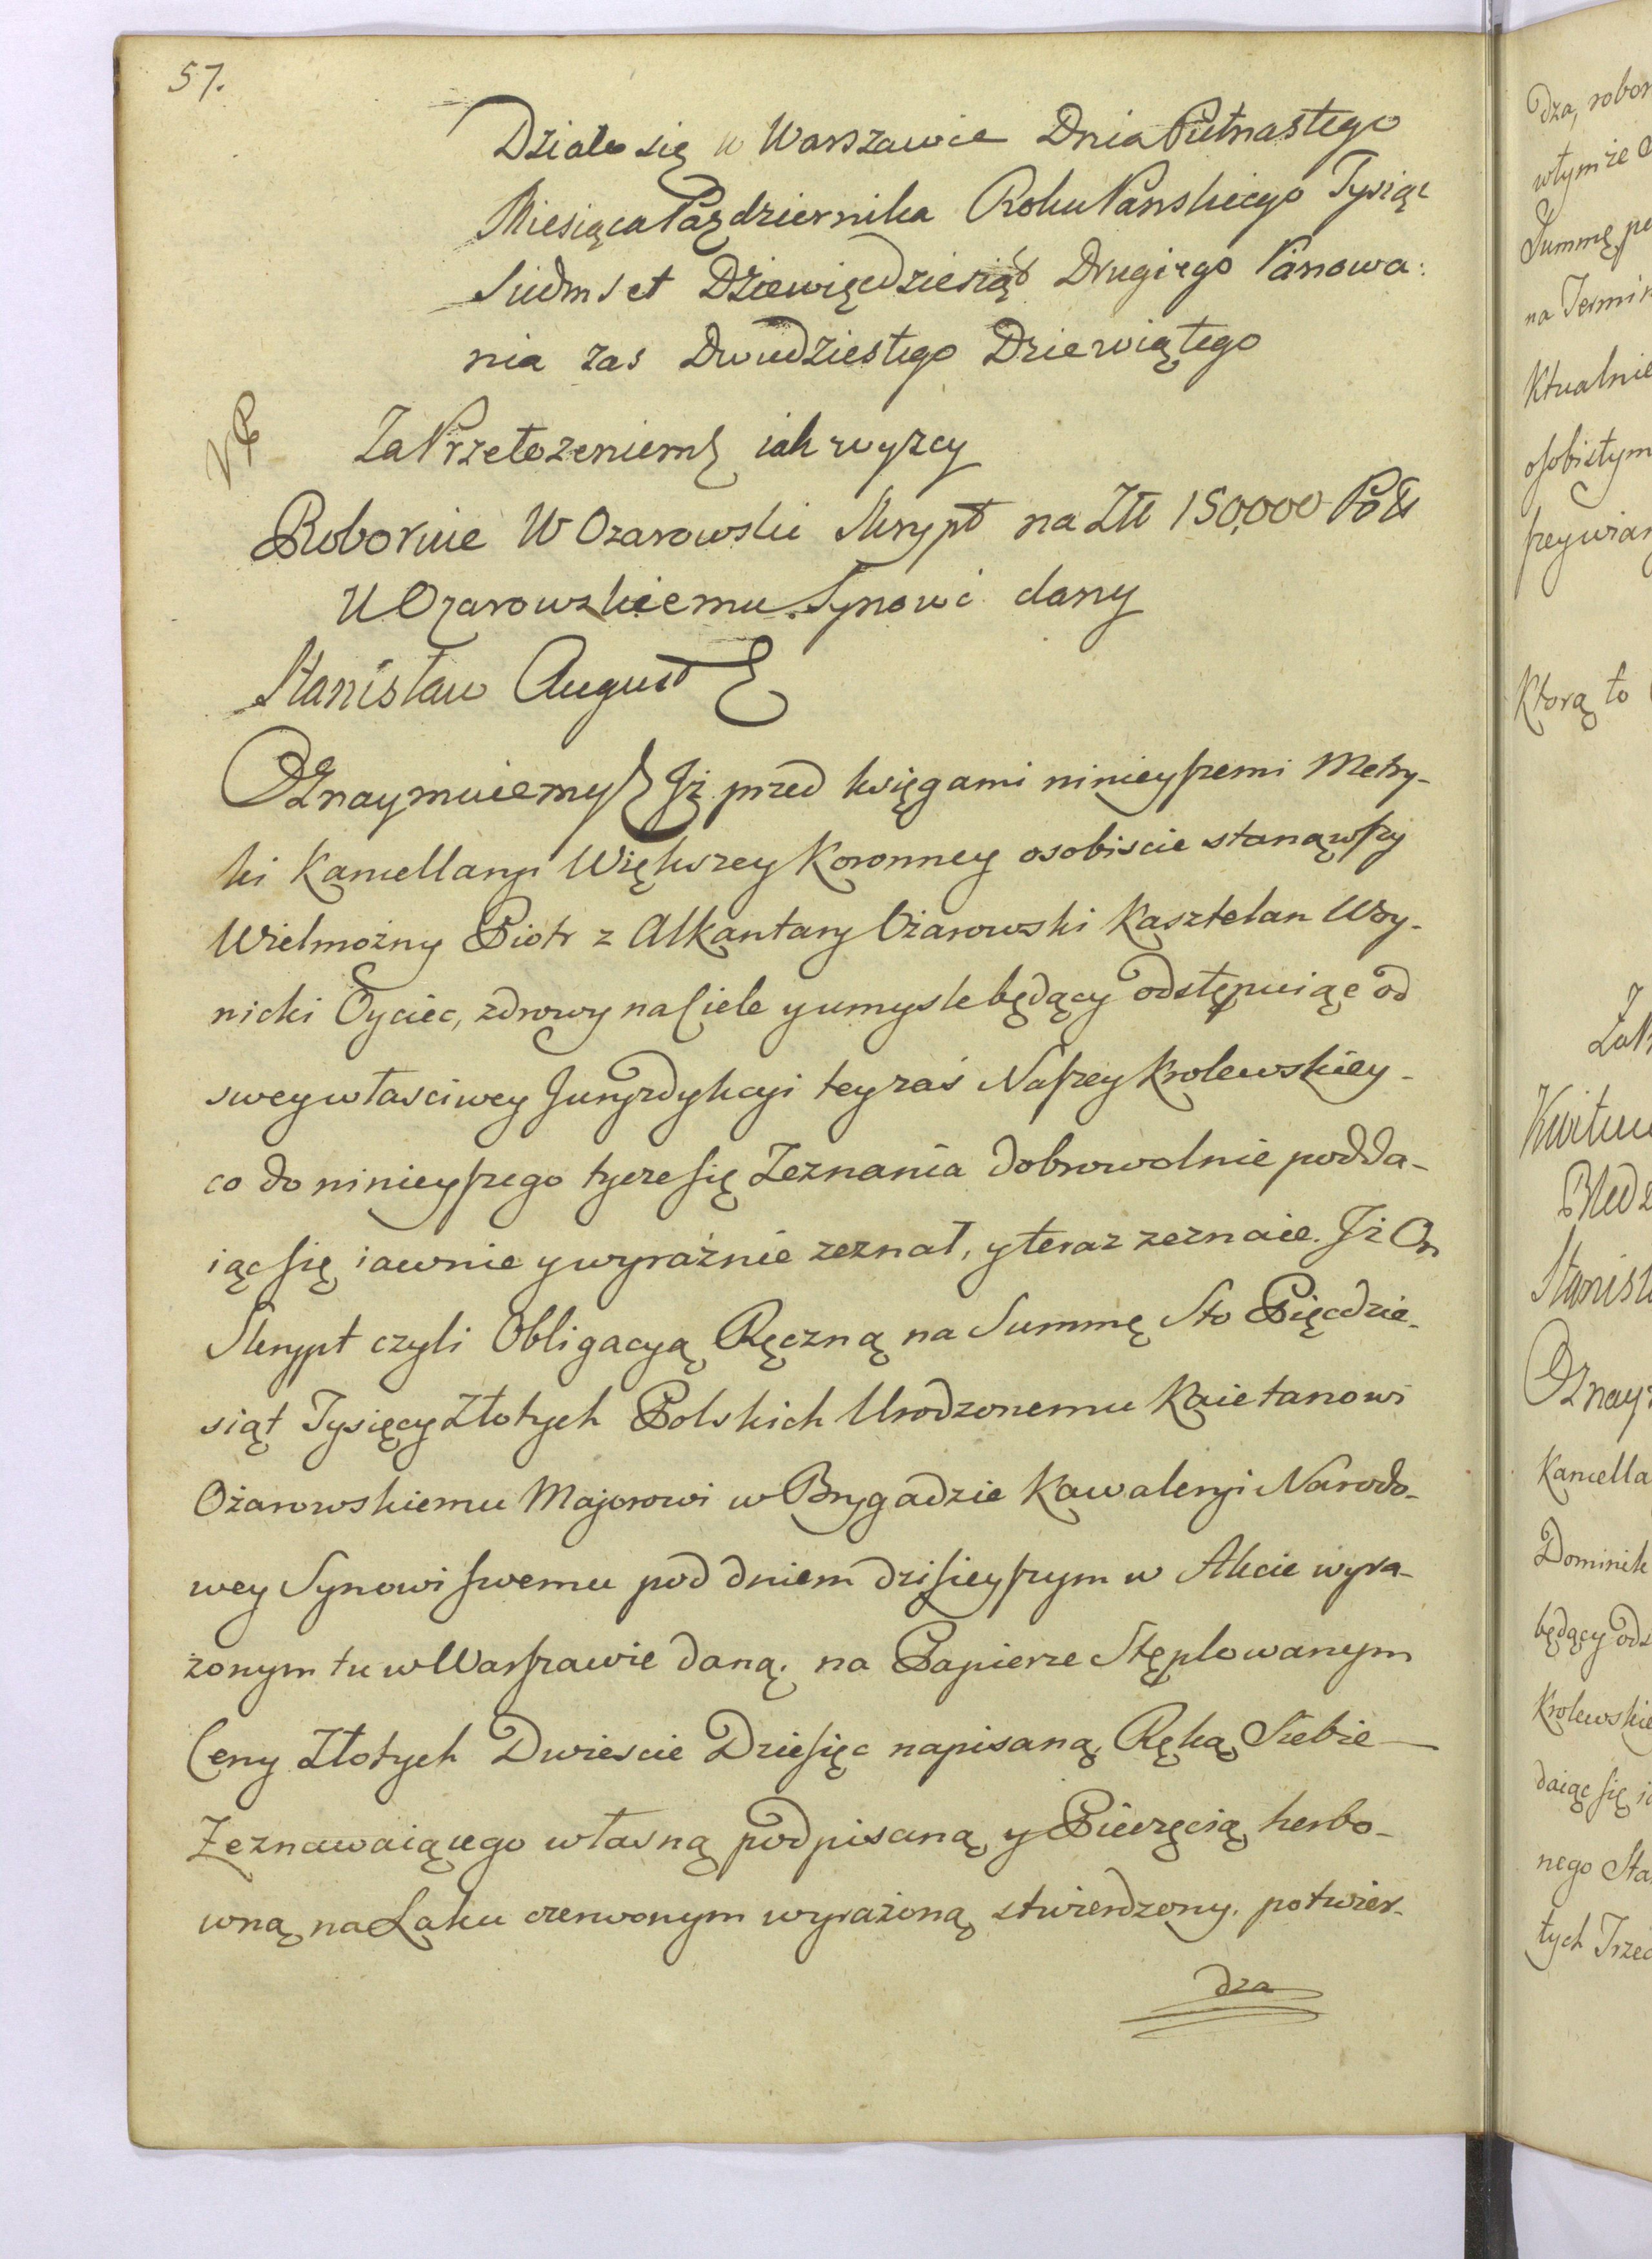 57.
Działo się w Warszawie Dnia Pietnastego
Miesiąca Pazdziernika Roku Panskiego Tysiąc
Siedmset Dziewięcdziesiąt Drugiego Panowa:
nia zas Dwudziestego Dziewiątego
Za Przełozeniem iak wyzey
Roboruie W Ozarowski Skrypt na Złł 150,000 Pols
U Ozarowskiemu Synowi dany
Stanisław August
Oznaymuiemy Jż przed księgami ninieyszemi Metry-
ki Kancellaryi Większey Koronney osobiscie stanąwszy
Wielmożny Piotr z Alkantary Ożarowski Kasztelan Woy-
nicki Oyciec, zdrowy na Ciele y umysle będący odstępuiąc od
swey własciwey Jurysdykcyi tey zaś Naszey Krolewskiey -
co do ninieyszego tycze się Zeznania dobrowolnie podda-
iąc się iawnie y wyraźnie zeznał, y teraz zeznaie. Jż On
Skrypt czyli Obligacyą Ręczną na Summę Sto Pięcdzie-
siąt Tysięcy Złotych Polskich Urodzonemu Kaietanowi
Ożarowskiemu Majorowi w Brygadzie Kawaleryi Narodo-
wey Synowi swemu pod dniem dzisieyszym w Akcie wyra-
żonym tu w Warszawie daną, na Papierze Stęplowanym
Ceny Złotych Dwiescie Dziesięc napisaną, Ręką Siebie
Zeznawaiącego własną podpisaną y Pieczęcią herbo-
wną na Laku czerwonym wyrażoną stwierdzony. potwier-
dza
dza, robor
w tymże
Summę
na Termin
ktualnie
osobistym
Ktorą to
Oznay
Kancella
Dominik
będący ods
Krolewskie
daiąc się
nego Sta
tych Trzec